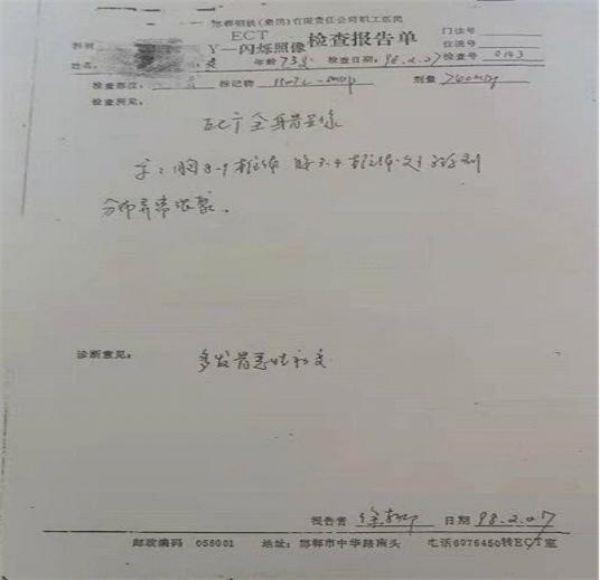 邯郸钢铁(集团)有限责任公司职工医院
ECT
γ—闪烁照像 检查报告单
门诊号
住院号
科别
姓名 年龄 73岁 检查日期: 98.2.07 检查号 0143
检查部位: 标记物 99mTc-MDP 剂量 740MBq
检查所见:
ECT全身骨显像
示:胸8-9椎体 腰3.4椎体
分布异常浓聚。
诊断意见: 多发骨恶性
报告者 日期 98.2.07
邮政编码 056001 地址: 邯郸市中华路南头 电话6076450转ECT室